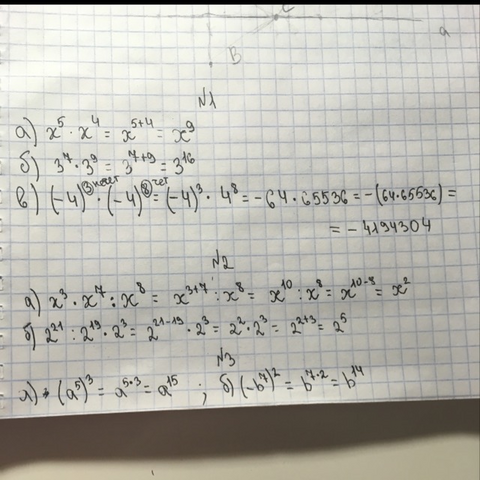 C
B
a
N1
а) x⁵ · x⁴ = x⁵⁺⁴ = x⁹
б) 3⁷ · 3⁹ = 3⁷⁺⁹ = 3¹⁶
в) (-4)³ нечет · (-4)⁸ чет = (-4)³ · 4⁸ = -64 · 65536 = -(64·65536) =
= -4194304
N2
а) x³ · x⁷ : x⁸ = x³⁺⁷ : x⁸ = x¹⁰ : x⁸ = x¹⁰⁻⁸ = x²
б) 2²¹ : 2¹⁹ · 2³ = 2²¹⁻¹⁹ · 2³ = 2² · 2³ = 2²⁺³ = 2⁵
N3
а) (a⁵)³ = a⁵·³ = a¹⁵ ; б) (-b⁷)² = b⁷·² = b¹⁴